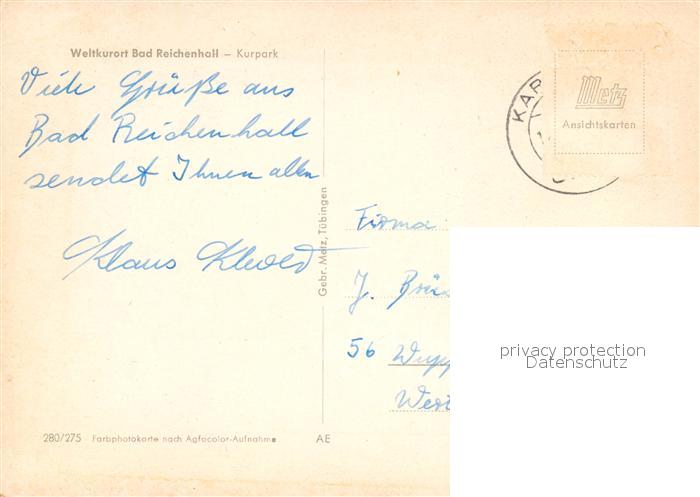 Weltkurort Bad Reichenhall – Kurpark
Viele Grüße aus
Bad Reichenhall
sendet Ihnen allen
Klaus
Gebr. Metz, Tübingen
280/275 Farbphotokarte nach Agfacolor-Aufnahme AE
KAR
Metz
Ansichtskarten
Firma
J. Brüs
56 Wupp
West
privacy protection
Datenschutz